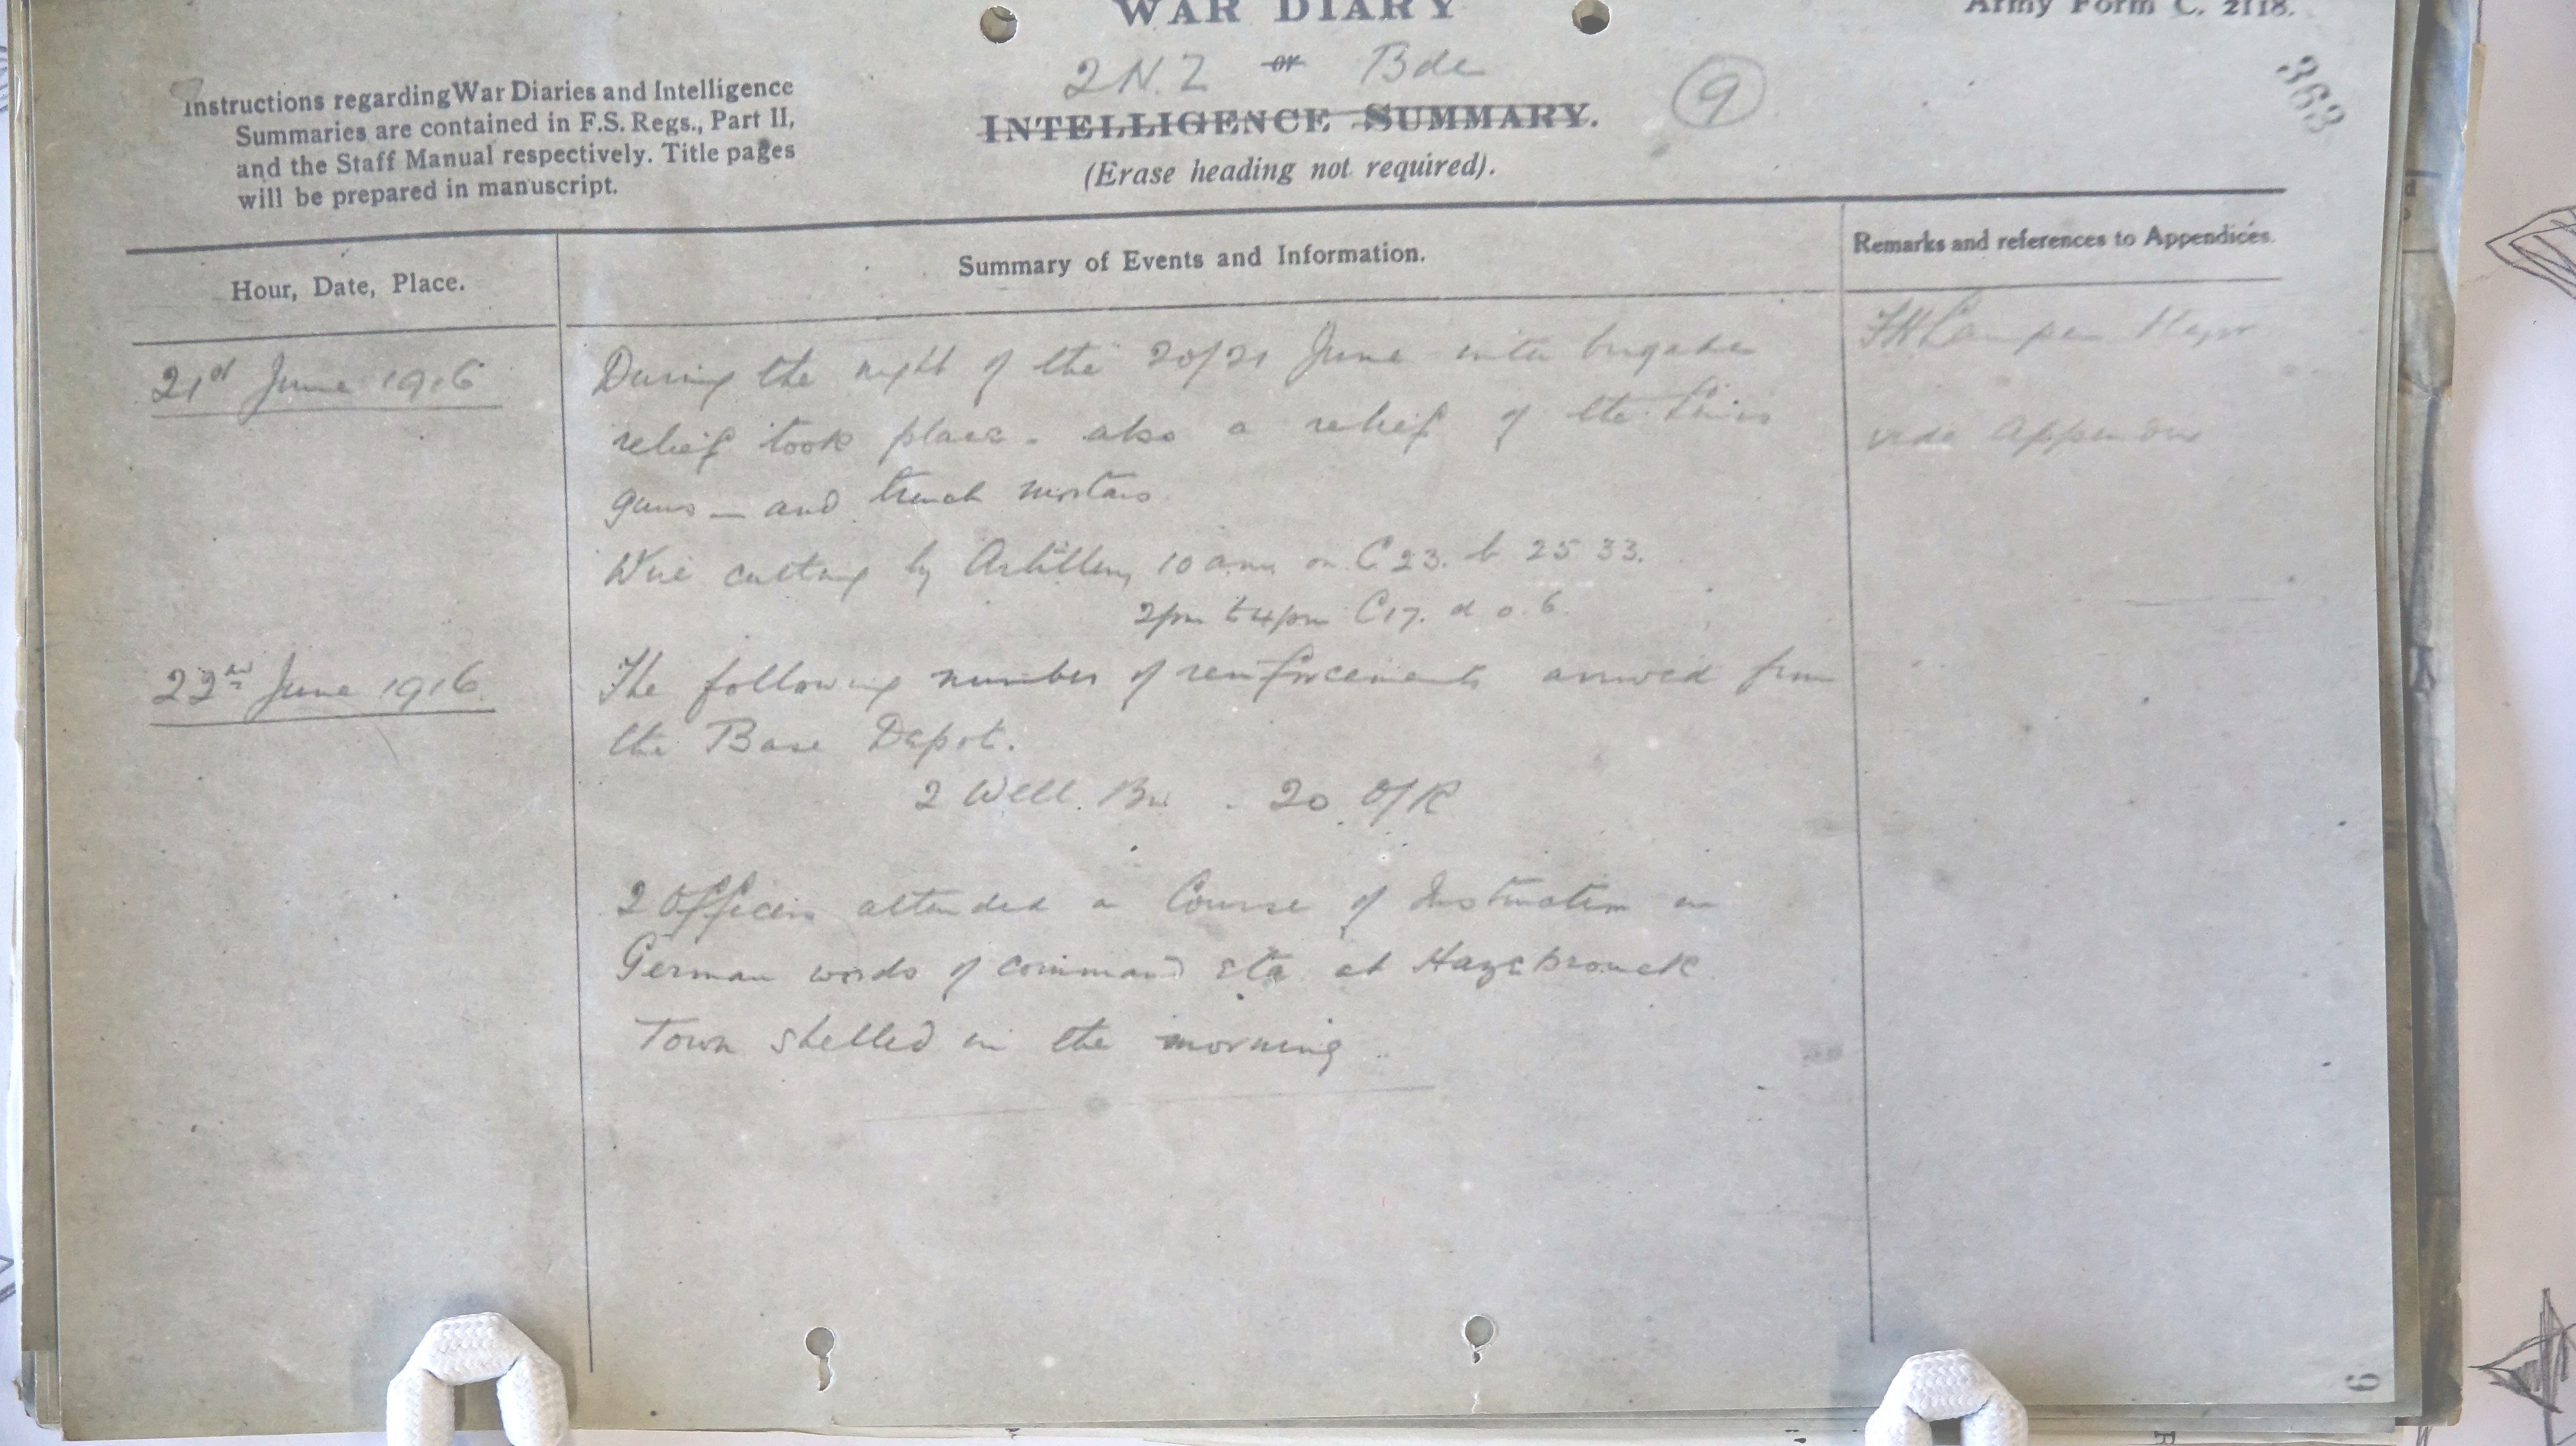 WAR DIARY
Army Form C. 2118.
2 N.Z or Bde
9
363
Instructions regarding War Diaries and Intelligence
Summaries are contained in F.S. Regs., Part II,
and the Staff Manual respectively. Title pages
will be prepared in manuscript.
INTELLIGENCE SUMMARY.
(Erase heading not required).
Hour, Date, Place.
Summary of Events and Information.
Remarks and references to Appendices.
21st June 1916
During the night of the 20/21 June inter brigade
relief took place - also a relief of the Lewis
guns - and trench mortars
vide Appendix
Wire cutting by Artillery 10 am on C 23. b 25 33.
2pm to 4pm C17. d 0.6.
22nd June 1916.
The following number of reinforcements arrived from
the Base Depot.
2 Well. Bn - 20 O/R
2 Officers attended a Course of Instruction in
German words of command etc at Hazebrouck
Town shelled in the morning
9